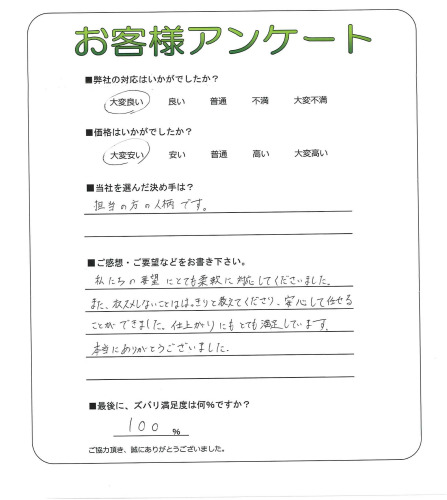 お客様アンケート
■弊社の対応はいかがでしたか?
大変良い 良い 普通 不満 大変不満
■価格はいかがでしたか?
大変安い 安い 普通 高い 大変高い
■当社を選んだ決め手は?
担当の方の人柄です。
■ご感想・ご要望などをお書き下さい。
私たちの要望にとても柔軟に対応してくださいました。
また、おススメしないことははっきりと教えてくださり、安心して任せる
ことができました。仕上がりにもとても満足しています。
本当にありがとうございました。
■最後に、ズバリ満足度は何%ですか?
100 %
ご協力頂き、誠にありがとうございました。